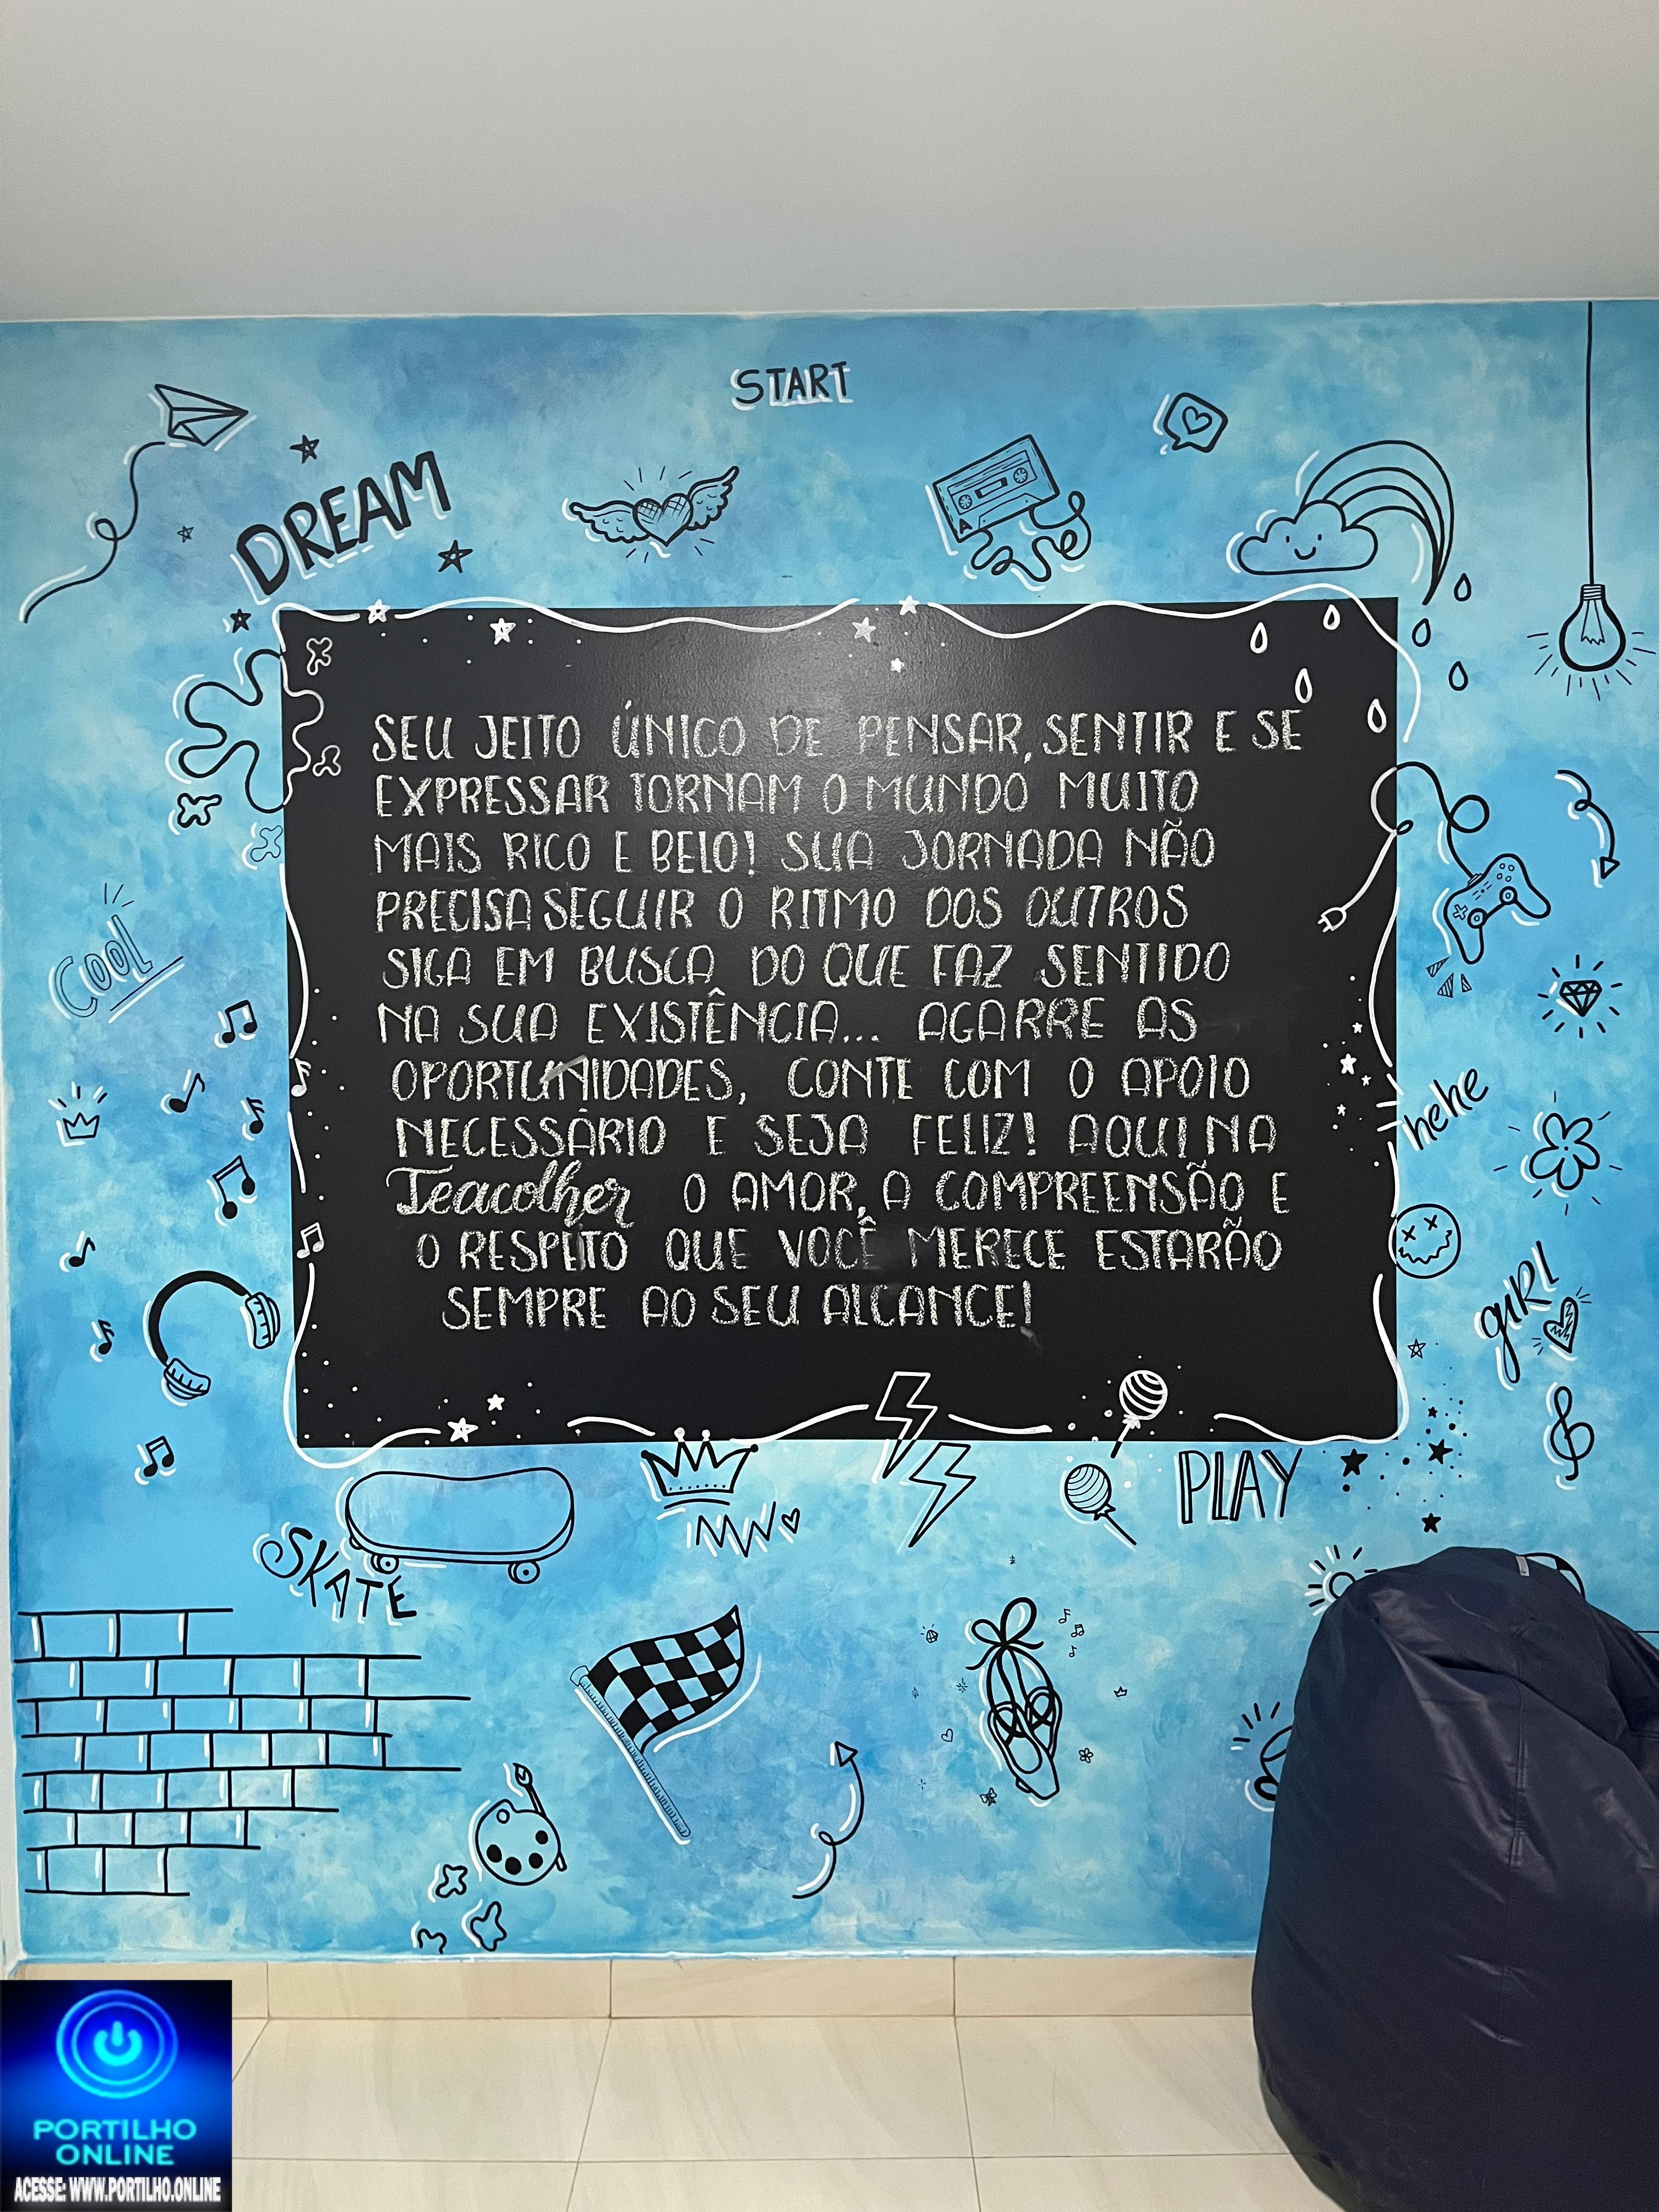 START
DREAM
A
SEU JEITO ÚNICO DE PENSAR, SENTIR E SE
EXPRESSAR TORNAM O MUNDO MUITO
MAIS RICO E BELO! SUA JORNADA NÃO
PRECISA SEGUIR O RITMO DOS OUTROS
SIGA EM BUSCA DO QUE FAZ SENTIDO
NA SUA EXISTÊNCIA... AGARRE AS
OPORTUNIDADES, CONTE COM O APOIO
NECESSÁRIO E SEJA FELIZ! AQUI NA
Teacolher O AMOR, A COMPREENSÃO E
O RESPEITO QUE VOCÊ MERECE ESTARÃO
SEMPRE AO SEU ALCANCE!
COOL
hehe
GIRL
PLAY
SKATE
PORTILHO
ONLINE
ACESSE: WWW.PORTILHO.ONLINE